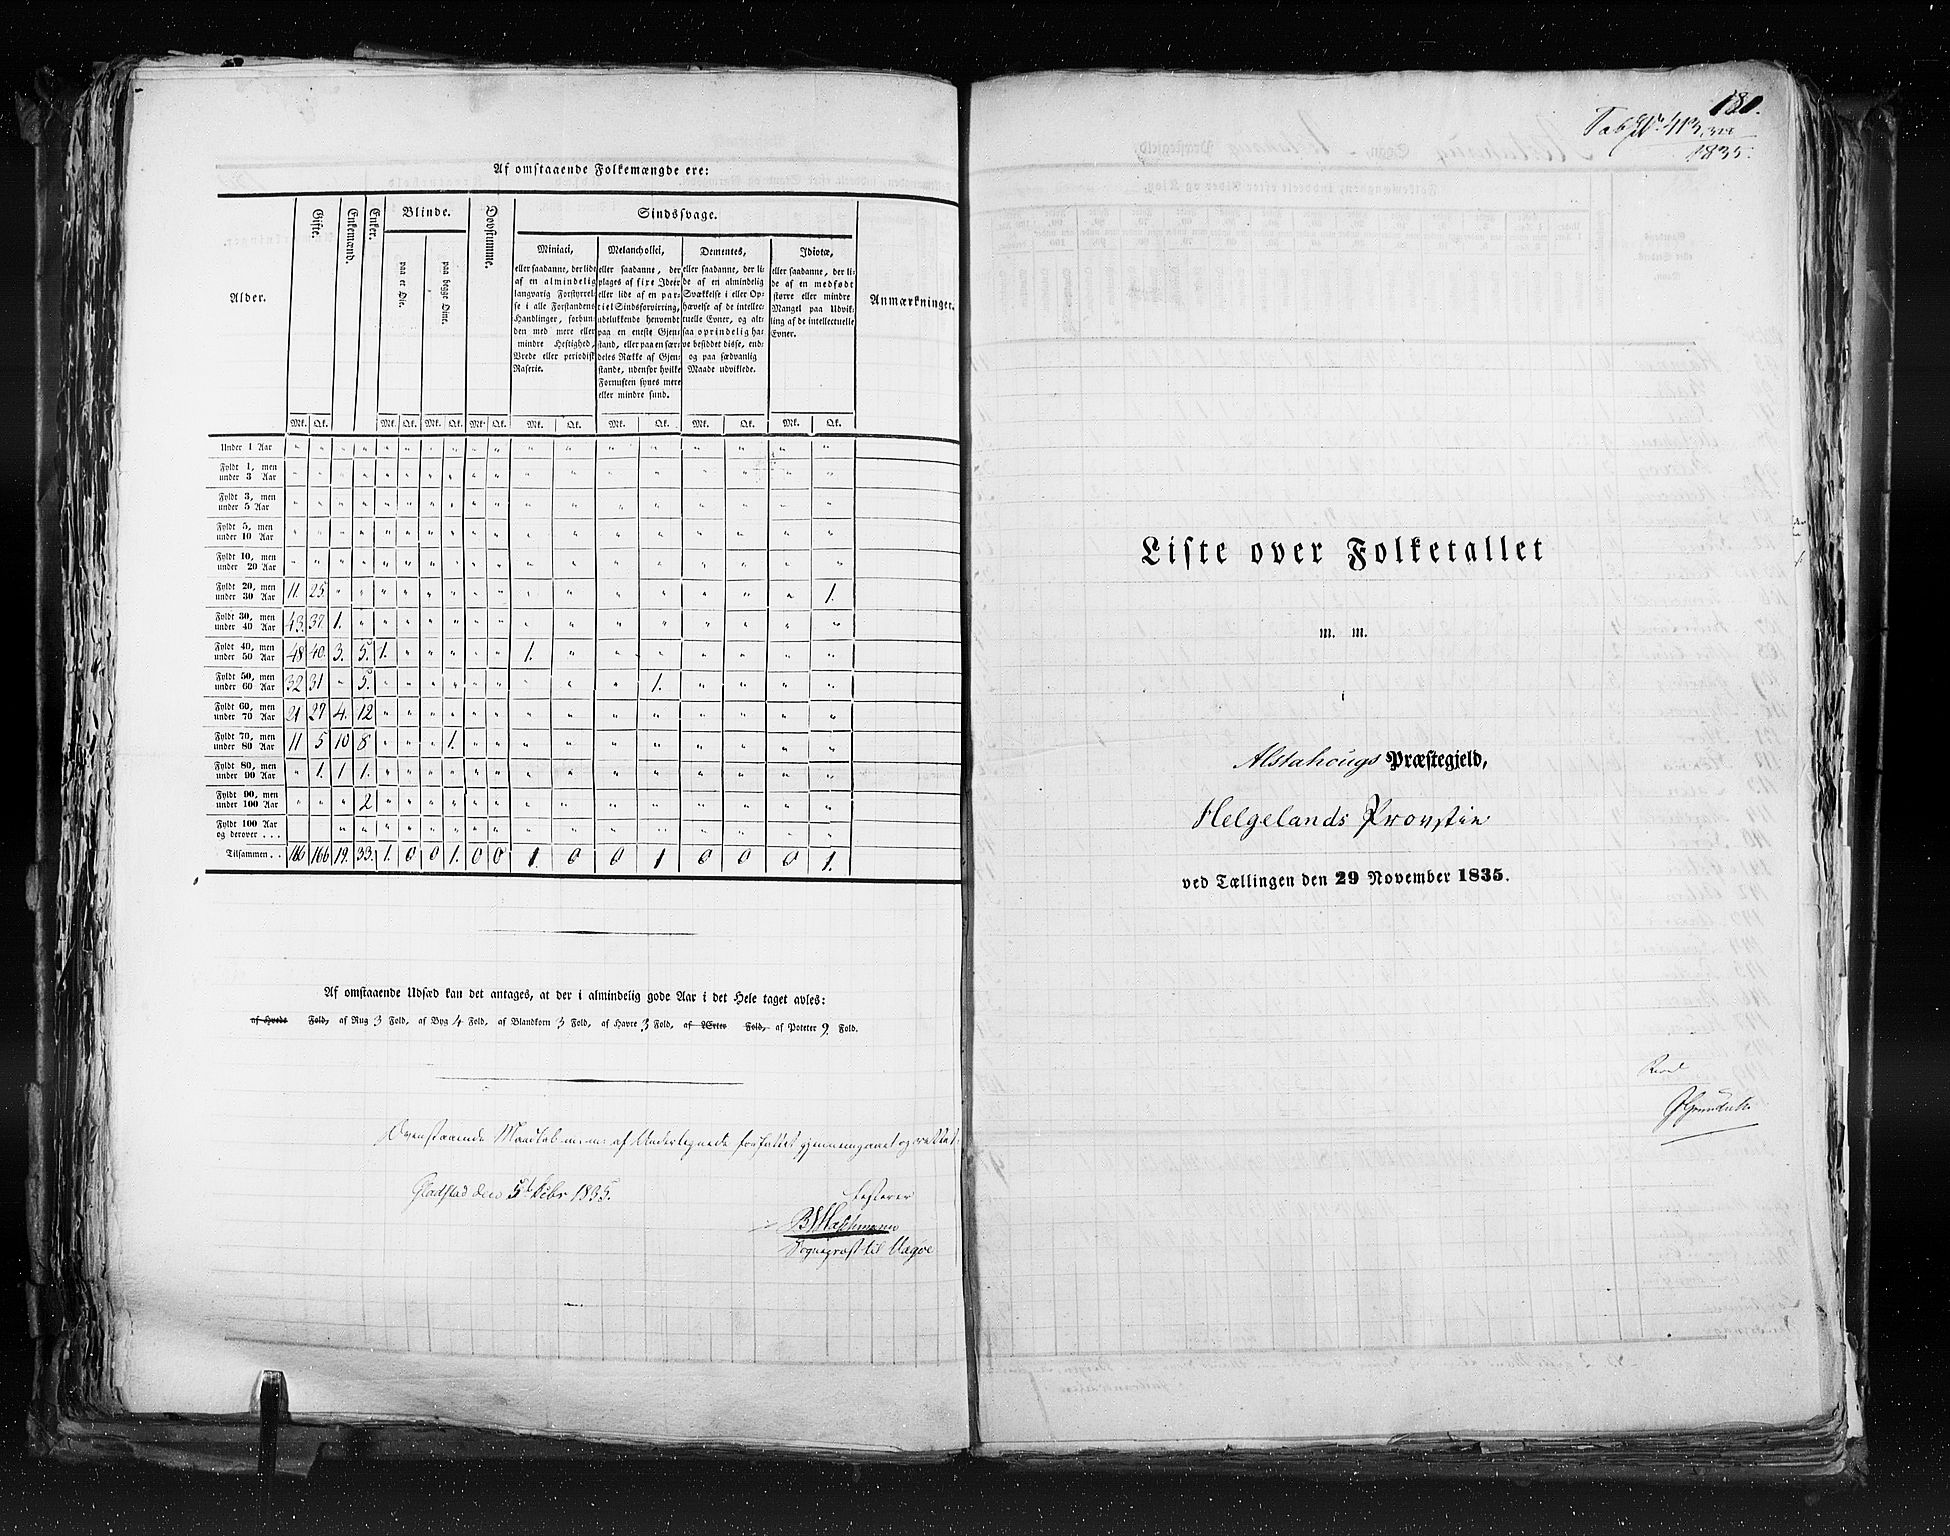 Af omstaaende Folkemængde ere:
Alder. Gifte. Enkemænd. Enker. Blinde. Døvstumme. Sindssvage. Anmærkninger.
paa et Øie. paa begge Øine.
Miniaci,
eller saadanne, der lide
af en almindelig
langvarig Forstyrrel-
se i alle Forstandens
Handlinger, forbun-
den med mere eller
mindre Heftighed,
Vrede eller periodisk
Raserie.
Melancholici,
eller saadanne, der
plages af fixe Ideer
eller lide af en par-
tiel Sindsforvirring,
udelukkende henvendt
paa en eneste Gjen-
stand, eller paa en sær-
deles Række af Gjen-
stande, udenfor hvilke
Fornuften synes mere
eller mindre sund.
Dementes,
eller saadanne, der li-
de af en almindelig
Svækkelse i eller Op-
hævelse af de intellec-
tuelle Evner, og alt-
saa oprindelig ha-
ve besiddet disse, end-
og paa sædvanlig
Maade udviklede.
Idiotæ,
eller saadanne, der li-
de af en medfødt
større eller mindre
Mangel paa Udvik-
ling af de intellectuelle
Evner.
Mk. Qk. Mk. Qk. Mk. Qk. Mk. Qk. Mk. Qk. Mk. Qk. Mk. Qk. Mk. Qk.
Under 1 Aar " " " " " " " " " " " " " " " " " "
Fyldt 1, men
under 3 Aar " " " " " " " " " " " " " " " " " "
Fyldt 3, men
under 5 Aar " " " " " " " " " " " " " " " " " "
Fyldt 5, men
under 10 Aar " " " " " " " " " " " " " " " " " "
Fyldt 10, men
under 20 Aar " " " " " " " " " " " " " " " " " "
Fyldt 20, men
under 30 Aar 11. 25 " " " " " " " " " " " " " " " 1.
Fyldt 30, men
under 40 Aar 43. 37. 1. " " " " " " " " " " " " " " "
Fyldt 40, men
under 50 Aar 48 40. 3. 5. 1. " " " " " 1. " " " " " " "
Fyldt 50, men
under 60 Aar 32 31 " 5. " " " " " " " " " 1. " " " "
Fyldt 60, men
under 70 Aar 21 27 4. 12 " " " " " " " " " " " " " "
Fyldt 70, men
under 80 Aar 11 5 10 8 " " " 1. " " " " " " " " " "
Fyldt 80, men
under 90 Aar " 1. 1 1. " " " " " " " " " " " " " "
Fyldt 90, men
under 100 Aar " " " 2 " " " " " " " " " " " " " "
Fyldt 100 Aar
og derover . . . " " " " " " " " " " " " " " " "
Tilsammen . . 166 166 19. 33. 1. 0 0 1. 0 0 1. 0 0 1 0 0 0 1.
Af omstaaende Udsæd kan det antages, at der i almindelig gode Aar i det Hele taget avles:
af Hvede Fold, af Rug 3 Fold, af Byg 4 Fold, af Blandkorn 3 Fold, af Havre 3 Fold, af Ærter Fold, af Poteter 9 Fold.
Ovenstaaende Mandtal m: m: af Undertegnede forfattet gjennemgaaet og rettet.
Gladstad den 5t Febr 1835.
testerer
Sognepræst til Vegøe
180.
Tab No. 413
1835.
Liste over Folketallet
m. m.
i
Alstahougs Præstegjeld,
Helgelands Provstie
ved Tællingen den 29 November 1835.